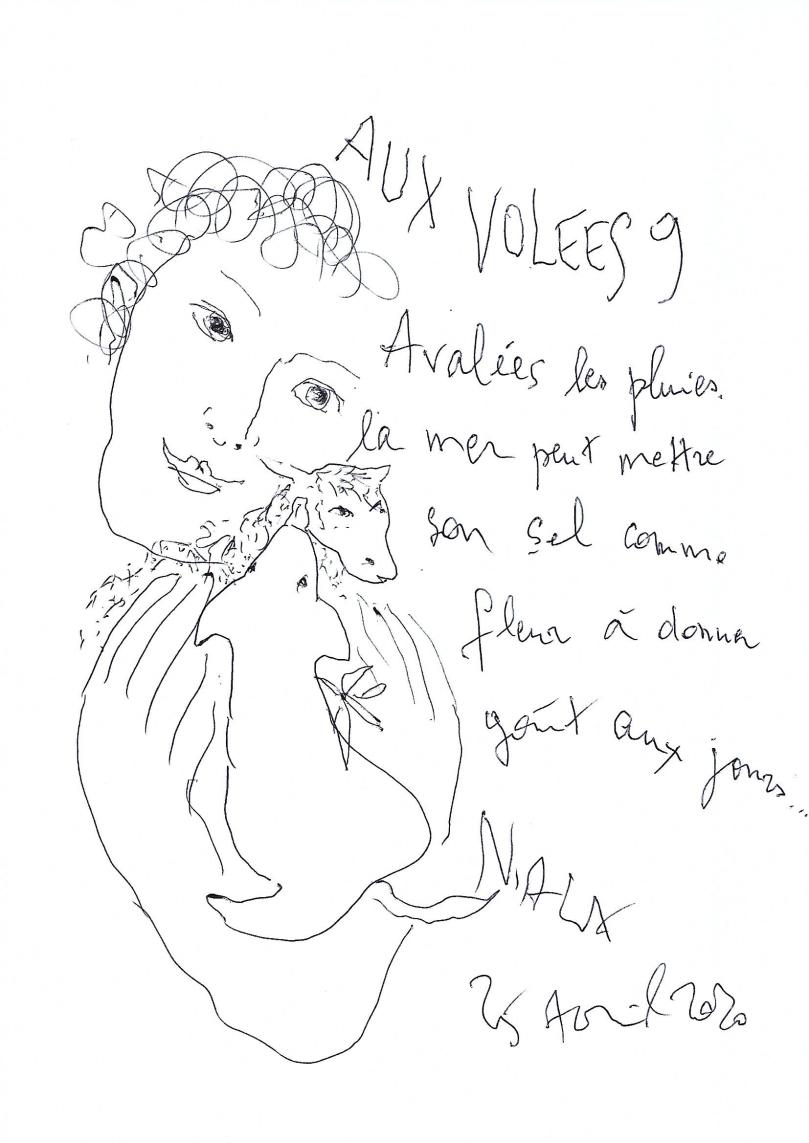 AUX VOLEES 9
Avalées les pluies
la mer peut mettre
son sel comme
fleur à donner
goût aux jours...
NIALA
25 Avril 2020